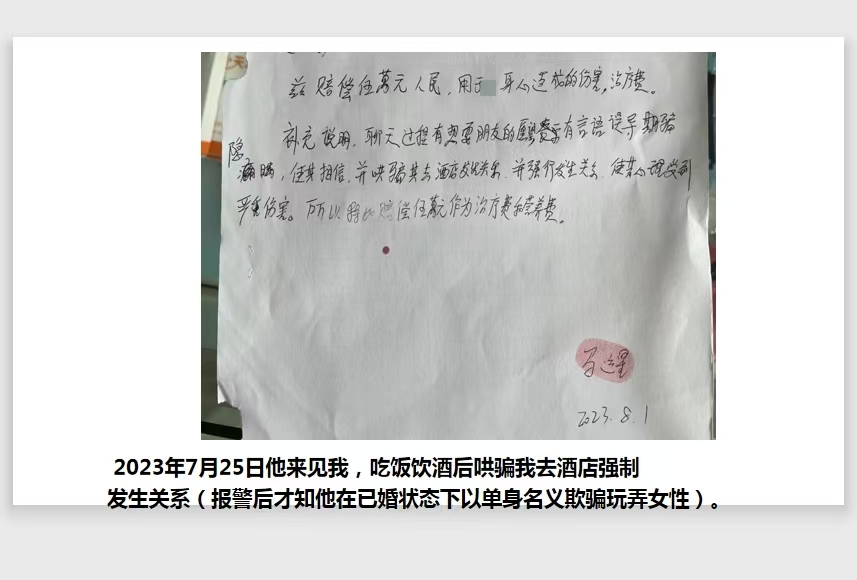 兹赔偿伍萬元人民,用于 身心造成的伤害,治疗费。
补充说明,聊天过程有想要朋友的 有言语误导 期骗
隐瞒,使其相信,并哄骗其去酒店发生关系,并强行发生关系,使其心理受到
严重伤害。所以 赔偿伍萬元作为治疗费和营养费。
2023.8.1
2023年7月25日他来见我,吃饭饮酒后哄骗我去酒店强制
发生关系(报警后才知他在已婚状态下以单身名义欺骗玩弄女性)。